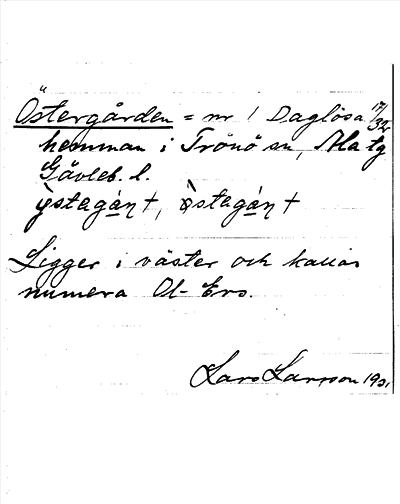 Östergården = nr 1 Daglösa 17/32
hemman i Trönö sn, Ala tg
Gävleb. l.
ÿstagán +, östagán +
Ligger i väster och kallas
numera Ol-Ers.
Lars Larsson 19